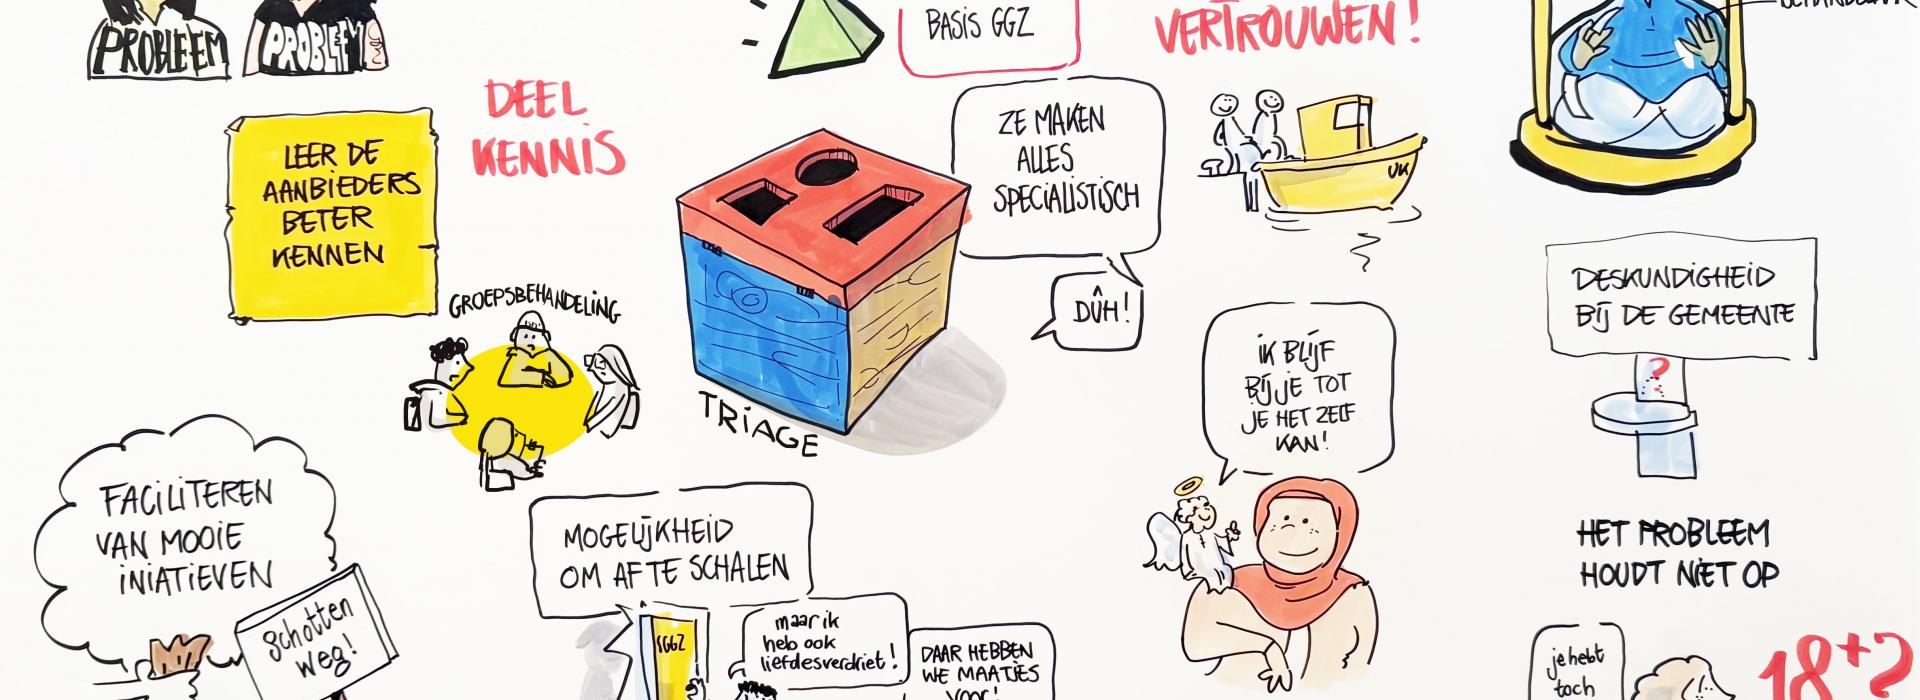 PROBLEEM
PROBLEEM
BASIS GGZ
VERTROUWEN!
DEEL
KENNIS
LEER DE
AANBIEDERS
BETER
KENNEN
ZE MAKEN
ALLES
SPECIALISTISCH
DÛH!
UK
DESKUNDIGHEID
BIJ DE GEMEENTE
?
GROEPSBEHANDELING
TRIAGE
IK BLIJF
BIJ JE TOT
JE HET ZELF
KAN!
FACILITEREN
VAN MOOIE
INIATIEVEN
schotten
weg!
MOGELIJKHEID
OM AF TE SCHALEN
SGGZ
maar ik
heb ook
liefdesverdriet!
DAAR HEBBEN
WE MAATJES
VOOR!
HET PROBLEEM
HOUDT NIET OP
je hebt
toch
18+?